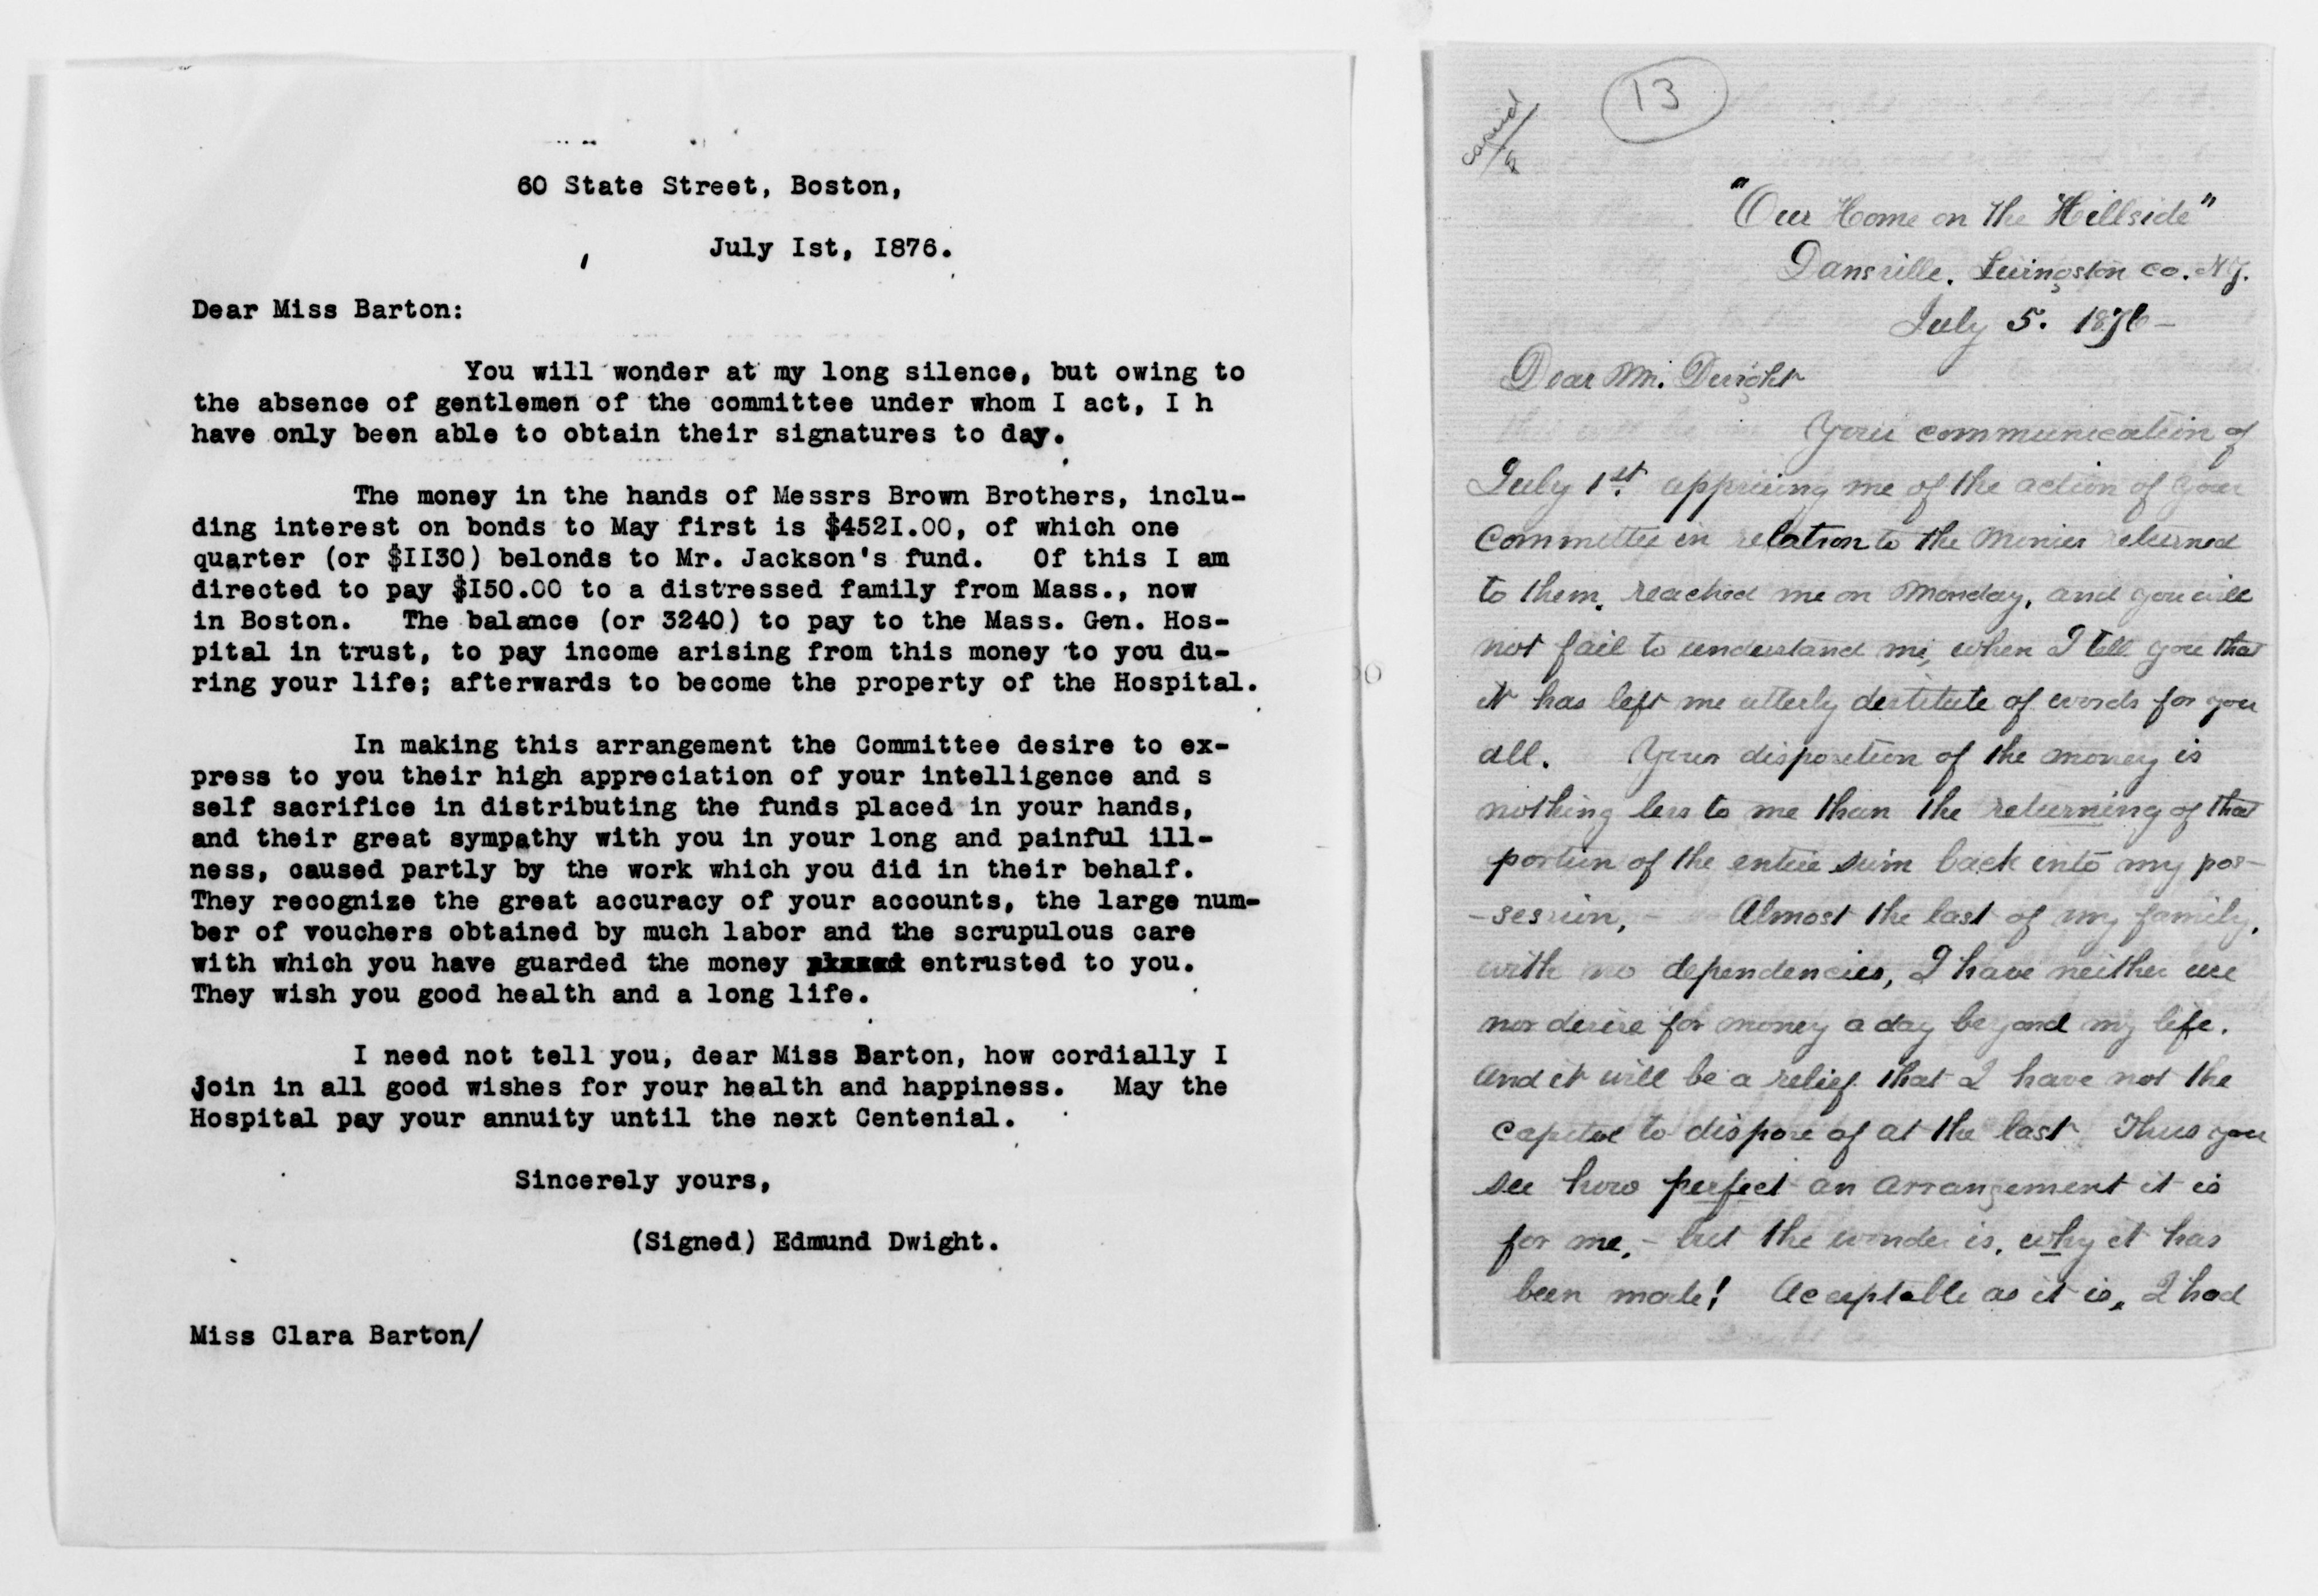 60 State Street, Boston,
July Ist, I876.
Dear Miss Barton:
You will wonder at my long silence, but owing to
the absence of gentlemen of the committee under whom I act, I h
have only been able to obtain their signatures to day.
The money in the hands of Messrs Brown Brothers, inclu-
ding interest on bonds to May first is $452I.00, of which one
quarter (or $II30) belonds to Mr. Jackson's fund. Of this I am
directed to pay $I50.00 to a distressed family from Mass., now
in Boston. The balance (or 3240) to pay to the Mass. Gen. Hos-
pital in trust, to pay income arising from this money to you du-
ring your life; afterwards to become the property of the Hospital.
In making this arrangement the Committee desire to ex-
press to you their high appreciation of your intelligence and s
self sacrifice in distributing the funds placed in your hands,
and their great sympathy with you in your long and painful ill-
ness, caused partly by the work which you did in their behalf.
They recognize the great accuracy of your accounts, the large num-
ber of vouchers obtained by much labor and the scrupulous care
with which you have guarded the money entrusted to you.
They wish you good health and a long life.
I need not tell you, dear Miss Barton, how cordially I
join in all good wishes for your health and happiness. May the
Hospital pay your annuity until the next Centenial.
Sincerely yours,
(Signed) Edmund Dwight.
Miss Clara Barton/
13
copied
"Our Home on the Hillside"
Dansville. Livingston co. N.Y.
July 5. 1876-
Dear Mr. Dwight
Your communication of
July 1st. apprising me of the action of your
Committee in relation to the monies returned
to them, reached me on Monday, and you will
not fail to understand me, when I tell you that
it has left me utterly destitute of words for you
all. Your disposition of the money is
nothing less to me than the returning of that
portion of the entire sum back into my pos-
-session, - Almost the last of my family,
with no dependencies, I have neither use
nor desire for money a day beyond my life.
And it will be a relief that I have not the
capital to dispose of at the last. Thus you
see how perfect an arrangement it is
for me, - but the wonder is, why it has
been made! Aceeptable as it is, I had